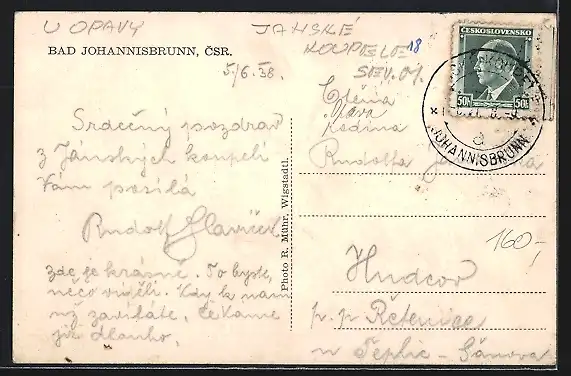 U OPAVY
JANSKÉ
KOUPELE 18
SEV. M.
BAD JOHANNISBRUNN, ČSR.
5/6.38.
Srdečný pozdrav
z Jánských koupelí
Vám posílá
Rudolf Hlavíček
zde je krásně. To byste,
něco viděli. Kdy k nám
už zavítáte, čekáme
již dlouho.
Photo R. Mühr, Wigstadtl.
ČESKOSLOVENSKO
50h 50h
JOHANNISBRUNN
a
Ctěná
rodina
Rudolfa
160,-
Hudcov
p. p. Řetenice
u Teplic-Šanova